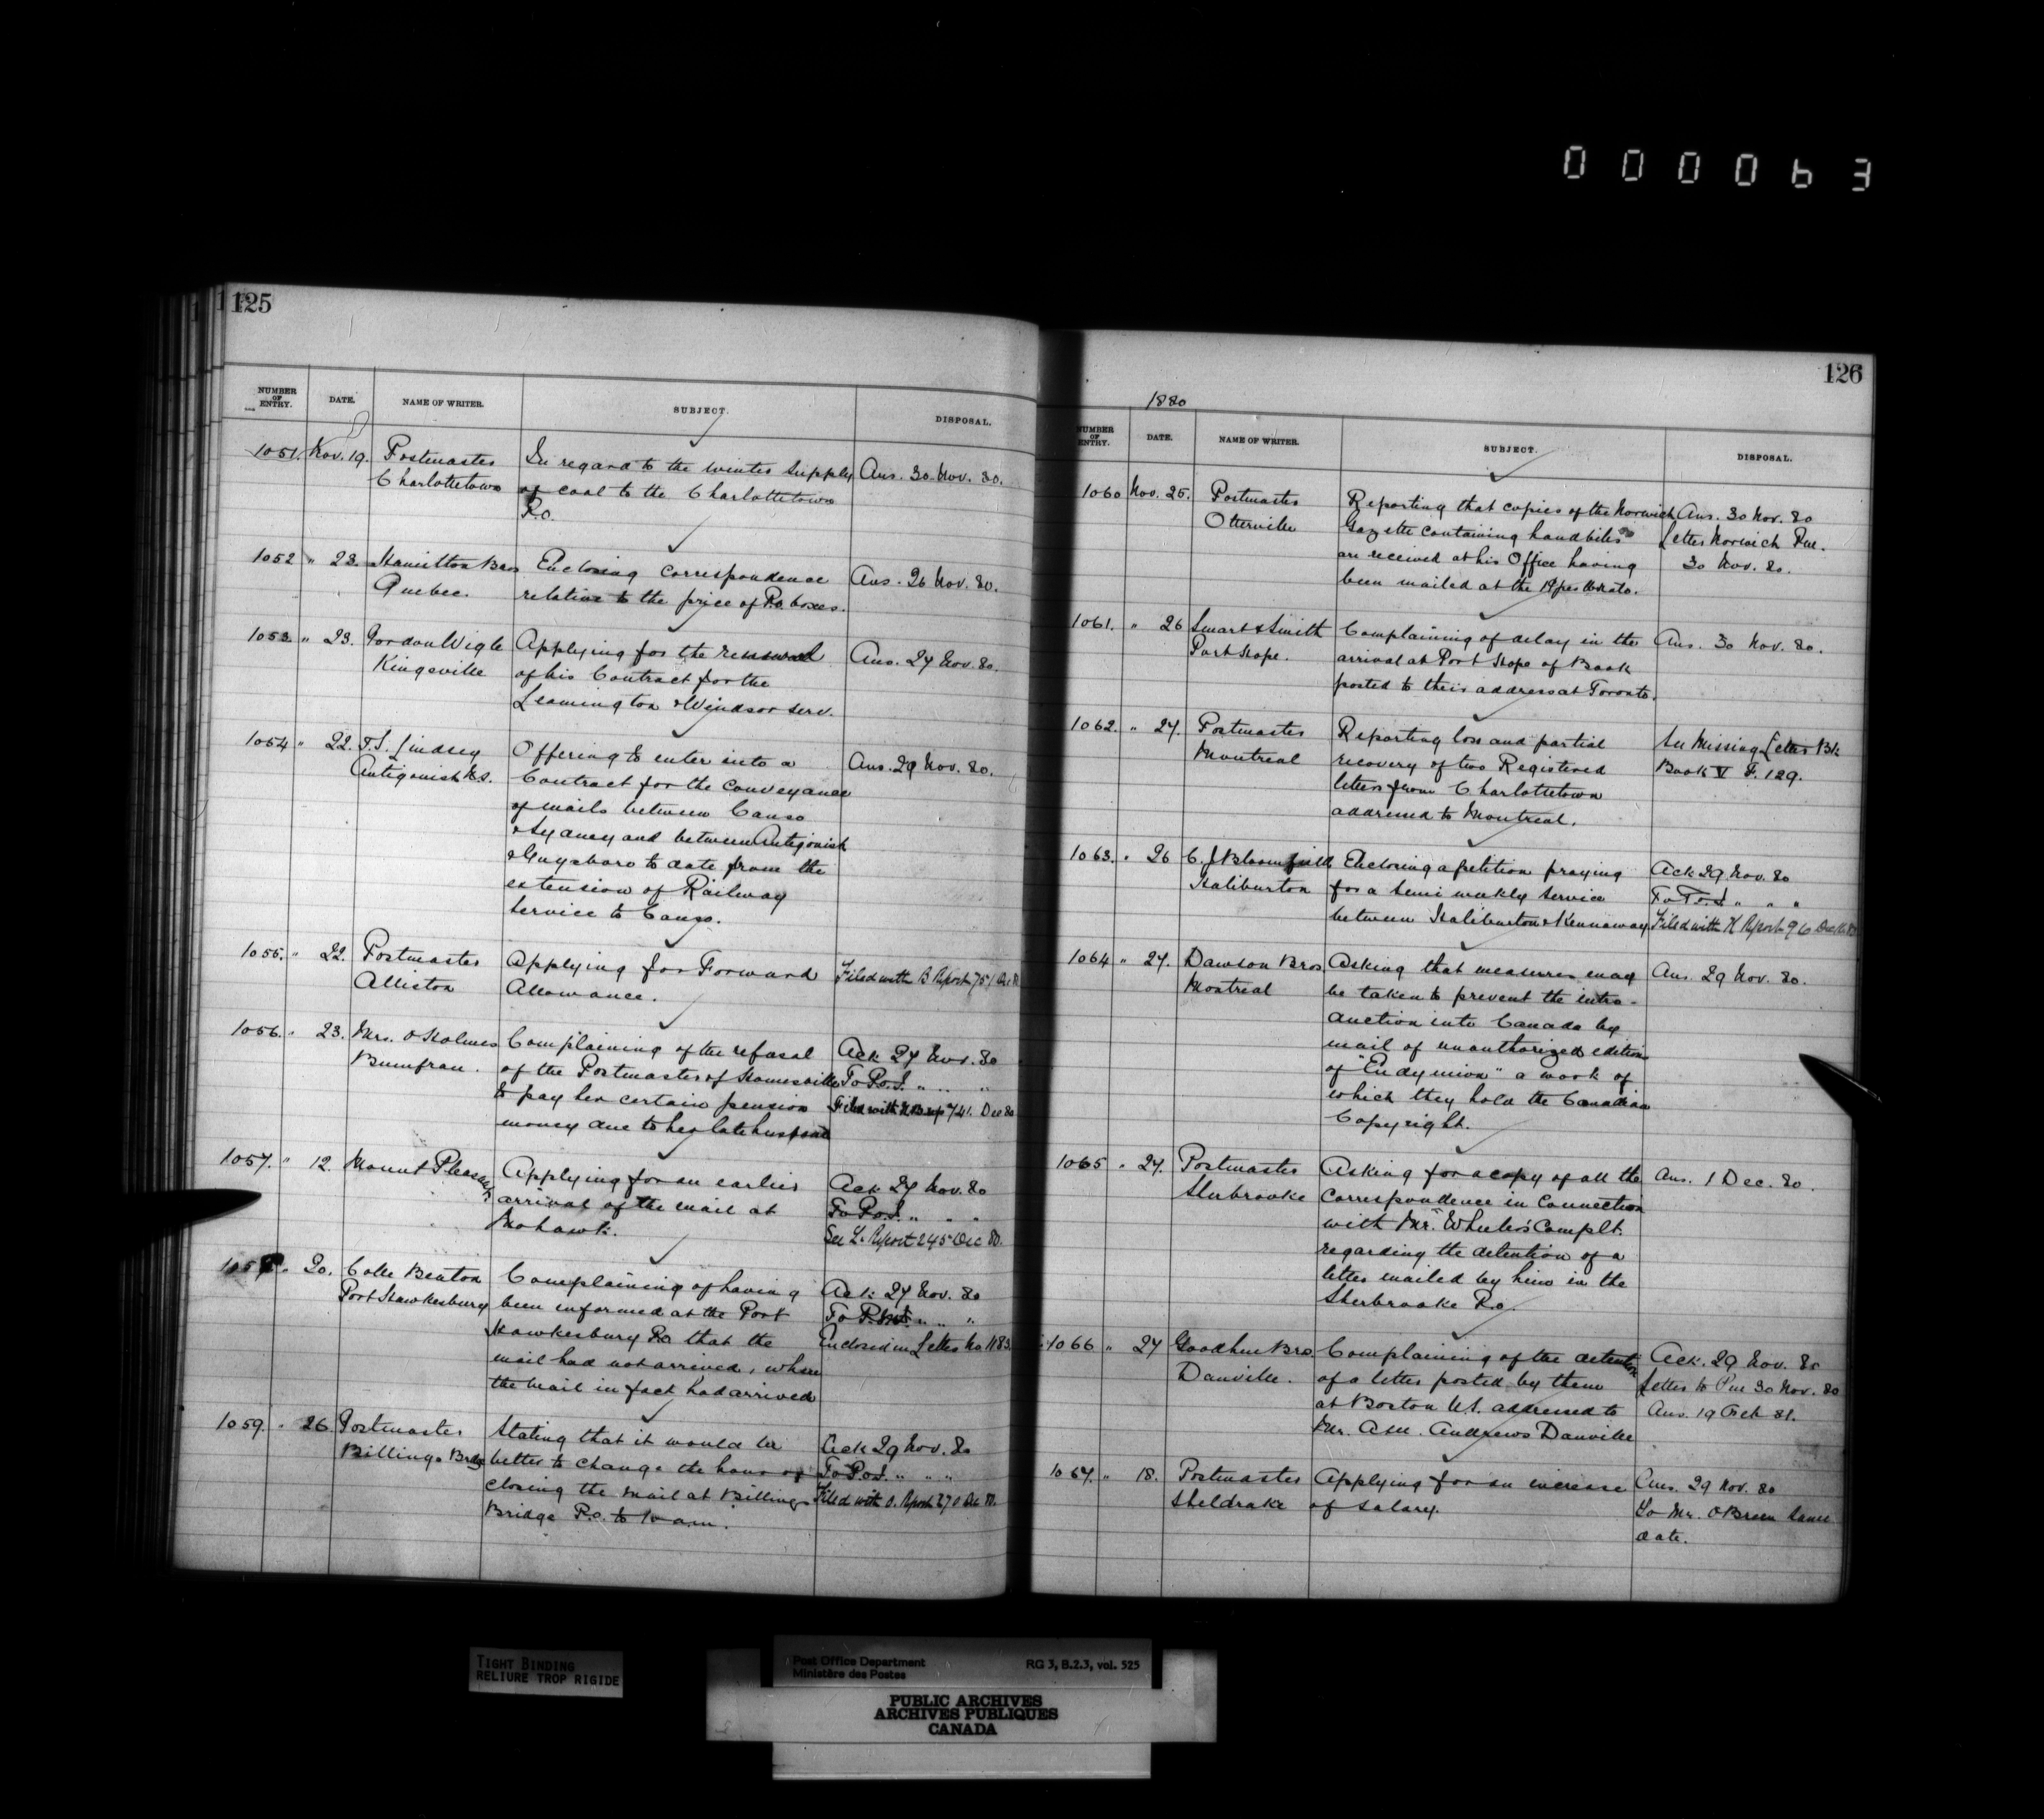 000063
125
NUMBER OF ENTRY. DATE. NAME OF WRITER. SUBJECT. DISPOSAL.
1051. Nov. 19. Postmaster In regard to the winter supply Ans. 30 Nov. 80.
Charlottetown of coal to the Charlottetown
P.O.
1052 " 23. Hamilton Bros Enclosing correspondence Ans. 26 Nov. 80.
Quebec. relative to the price of P.O. boxes.
1053. " 23. Gordon Wigle Applying for the renewal Ans. 27 Nov. 80.
Kingsville of his Contract for the
Leamington & Windsor Serv.
1054 " 22. T.S. Lindsey Offering to enter into a Ans. 29 Nov. 80.
Antigonish N.S. Contract for the conveyance
of mails between Canso
& Sydney and between Antigonish
& Guysboro to date from the
extension of Railway
Service to Canso.
1055. " 22. Postmaster Applying for Forward Filed with B Report 751 Dec 80
Alliston Allowance.
1056. " 23. Mrs. O Holmes Complaining of the refusal Ack 27 Nov. 80
of the Postmaster of Holmesville To P.O.I. " " "
to pay her certain pension Filed with 741. Dec 80
money due to her late husband
1057. " 12. Mount Pleasant Applying for an earlier Ack 27 Nov. 80
arrival of the mail at To P.O.I. " " "
Mohawk. See L. Report 245 Dec 80.
1058 " 20. Colle Beaton Complaining of having Ack 27 Nov. 80
Port Hawkesbury been informed at the Port To " "
Hawkesbury P.O. that the Enclosed in Letter No 1183.
mail had not arrived, when
the mail in fact had arrived
1059. " 26 Postmaster Stating that it would be Ack 29 Nov. 80
Billings Bridge better to change the hour of To P.O.I. " " "
closing the mail at Billings Filed with O. Report 270 Dec 80.
Bridge P.O. to 10 a.m.
126
1880
NUMBER OF ENTRY. DATE. NAME OF WRITER. SUBJECT. DISPOSAL.
1060 Nov. 25. Postmaster Reporting that copies of the Norwich Ans. 30 Nov. 80
Otterville Gazette containing handbills Letter Norwich Pm.
are received at his Office having 30 Nov. 80.
been mailed at the
1061. " 26 Smart & Smith Complaining of delay in the Ans. 30 Nov. 80.
Port Hope. arrival at Port Hope of Book
posted to their address at Toronto.
1062. " 27. Postmaster Reporting loss and partial See Missing Letter Bk
Montreal recovery of two Registered Book V F. 129.
letters from Charlottetown
addressed to Montreal.
1063. " 26 C. J. Bloomfield Enclosing a petition praying Ack 29 Nov. 80
Haliburton for a semi weekly service To P.O.I. " " "
between Haliburton & Kennaway Filed with K Report 96 Dec 80
1064 " 27. Dawson Bros. Asking that measures may Ans. 29 Nov. 80.
Montreal be taken to prevent the intro-
duction into Canada by
mail of unauthorized edition
of "Endymion" a work of
which they hold the Canadian
Copyright.
1065 " 27. Postmaster Asking for a copy of all the Ans. 1 Dec. 80.
Sherbrooke Correspondence in Connection
with Mr. Wheeler's Complt.
regarding the detention of a
letter mailed by him in the
Sherbrooke P.O.
1066 " 27 Goodhue Bro. Complaining of the detention Ack. 29 Nov. 80
Danville. of a letter posted by them Letter to Pm 30 Nov. 80
at Boston U.S. addressed to Ans. 19 Feb 81.
Mr. Asa. Andrews Danville
1067. " 18. Postmaster Applying for an increase Ans. 29 Nov. 80
Sheldrake of salary. To Mr. O'Brien same
date.
TIGHT BINDING
RELIURE TROP RIGIDE
Post Office Department
Ministère des Postes
RG 3, B.2.3, vol. 525
PUBLIC ARCHIVES
ARCHIVES PUBLIQUES
CANADA